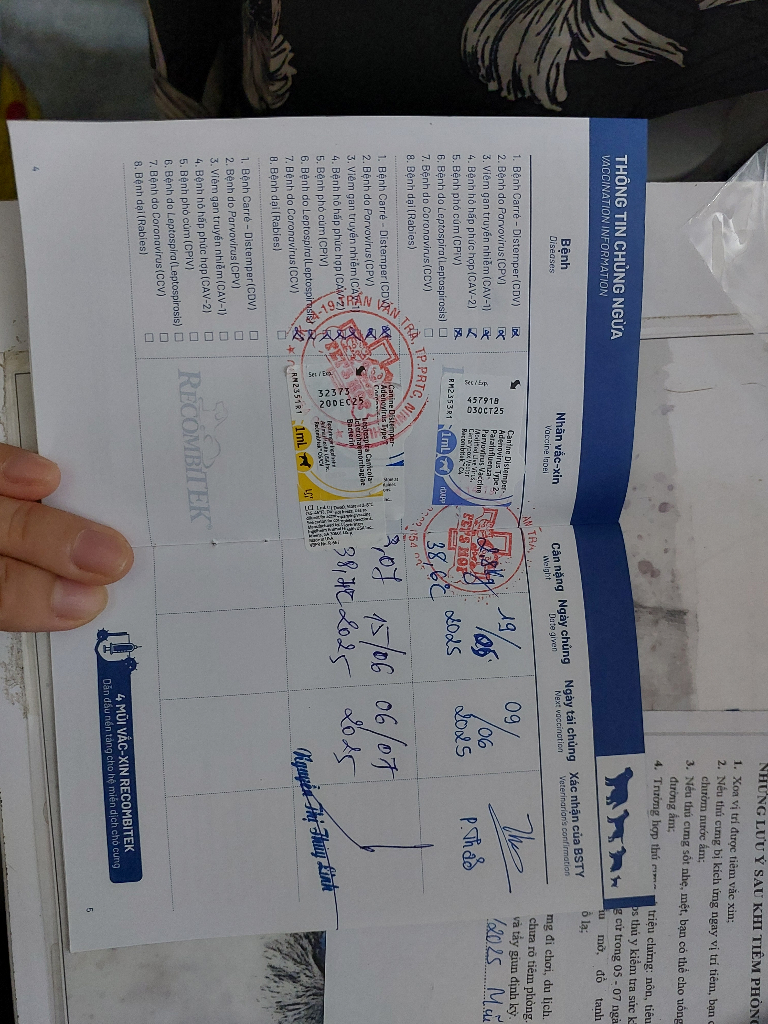 THÔNG TIN CHỦNG NGỪA
VACCINATION INFORMATION
Bệnh
Diseases
Nhãn vắc-xin
Vaccine label
Cân nặng
Weight
Ngày chủng
Date given
Ngày tái chủng
Next vaccination
Xác nhận của BSTY
Veterinarian's confirmation
1. Bệnh Carré - Distemper (CDV)
2. Bệnh do Parvovirus (CPV)
3. Viêm gan truyền nhiễm (CAV-1)
4. Bệnh hô hấp phức hợp (CAV-2)
5. Bệnh phó cúm (CPiV)
6. Bệnh do Leptospira (Leptospirosis)
7. Bệnh do Coronavirus (CCV)
8. Bệnh dại (Rabies)
Ser./Exp.
45791B
03OCT25
RM2353R1
Canine Distemper-
Adenovirus Type 2-
Parainfluenza-
Parvovirus Vaccine
1mL
38,6°C
19/
05
2025
09/
06
2025
P. Thảo
1. Bệnh Carré - Distemper (CDV)
2. Bệnh do Parvovirus (CPV)
3. Viêm gan truyền nhiễm (CAV-1)
4. Bệnh hô hấp phức hợp (CAV-2)
5. Bệnh phó cúm (CPiV)
6. Bệnh do Leptospira (Leptospirosis)
7. Bệnh do Coronavirus (CCV)
8. Bệnh dại (Rabies)
TRẦN VĂN TRÀ, TP.PRTC
PET'S
Ser./Exp.
32373
20DEC25
RM2351R1
Canine Distemper-
Adenovirus Type
Leptospira Canicola-
Icterohaemorrhagiae
Bacterin
1mL
38,7°C
15/06
2025
06/07
2025
Nguyễn Thị Thùy Linh
1. Bệnh Carré - Distemper (CDV)
2. Bệnh do Parvovirus (CPV)
3. Viêm gan truyền nhiễm (CAV-1)
4. Bệnh hô hấp phức hợp (CAV-2)
5. Bệnh phó cúm (CPiV)
6. Bệnh do Leptospira (Leptospirosis)
7. Bệnh do Coronavirus (CCV)
8. Bệnh dại (Rabies)
RECOMBITEK
4
4 MŨI VẮC-XIN RECOMBITEK
Dẫn đầu nền tảng cho hệ miễn dịch chó cưng
5
NHỮNG LƯU Ý SAU KHI TIÊM PHÒNG
1. Xoa vị trí được tiêm vắc xin;
2. Nếu thú cưng bị kích ứng ngay vị trí tiêm, bạn
chườm nước ấm;
3. Nếu thú cưng sốt nhẹ, mệt, bạn có thể cho uống
đường ấm;
4. Trường hợp thú
triệu chứng: nôn, tiêu
thú y kiểm tra sức
cứ trong 05 - 07 ngà
mỡ, đồ tanh
ồ lạ;
ng đi chơi, du lịch.
chưa rõ tiêm phòng.
và tẩy giun định kỳ.
/2025